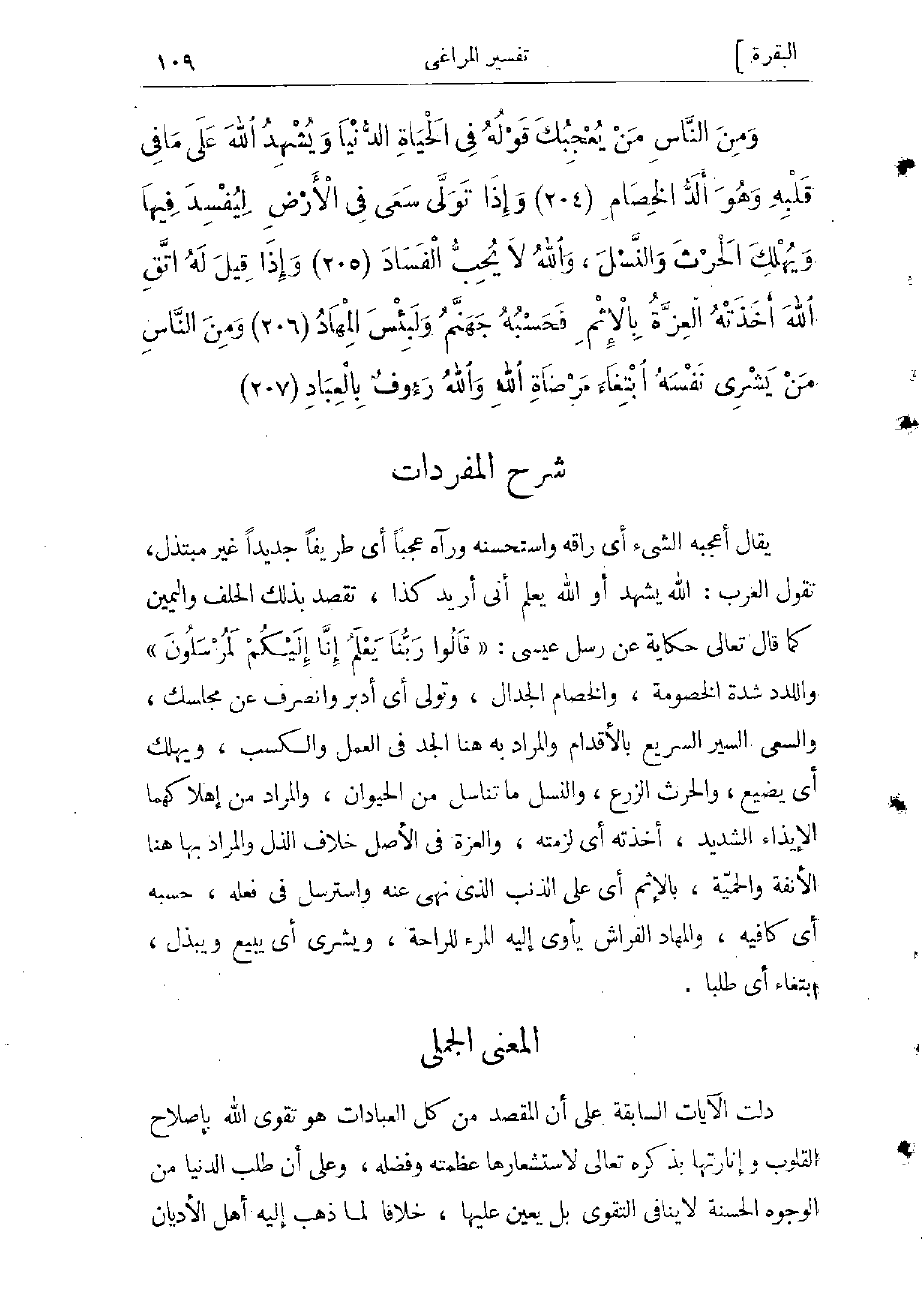 البقرة ]
تفسير المراغى
١٠٩
وَمِنَ النَّاسِ مَنْ يُعْجِبُكَ قَوْلُهُ فِى الْحَيَاةِ الدُّنْيَا وَيُشْهِدُ اللهَ عَلَى مَا فِى
قَلْبِهِ وَهُوَ أَلَدُّ الْخِصَامِ (٢٠٤) وَإِذَا تَوَلَّى سَعَى فِى الْأَرْضِ لِيُفْسِدَ فِيهَا
وَيُهْلِكَ الْحَرْثَ وَالنَّسْلَ ، وَاللهُ لاَ يُحِبُّ الْفَسَادَ (٢٠٥) وَإِذَا قِيلَ لَهُ اتَّقِ
اللهَ أَخَذَتْهُ الْعِزَّةُ بِالْإِثْمِ فَحَسْبُهُ جَهَنَّمُ وَلَبِئْسَ الْمِهَادُ (٢٠٦) وَمِنَ النَّاسِ
مَنْ يَشْرِى نَفْسَهُ ابْتِغَاءَ مَرْضَاةِ اللهِ وَاللهُ رَءُوفٌ بِالْعِبَادِ (٢٠٧)
شرح المفردات
يقال أعجبه الشىء أى راقه واستحسنه ورآه عجباً أى طريفاً جديداً غير مبتذل،
تقول العرب : الله يشهد أو الله يعلم أنى أريد كذا ، تقصد بذلك الحلف واليمين
كما قال تعالى حكاية عن رسل عيسى : « قَالُوا رَبُّنَا يَعْلَمُ إِنَّا إِلَيْكُمْ لَمُرْسَلُونَ »
واللدد شدة الخصومة ، والخصام الجدال ، وتولى أى أدبر وانصرف عن مجلسك ،
والسعى السير السريع بالأقدام والمراد به هنا الجد فى العمل والكسب ، ويهلك
أى يضيع ، والحرث الزرع ، والنسل ما تناسل من الحيوان ، والمراد من إهلاكهما
الإيذاء الشديد ، أخذته أى لزمته ، والعزة فى الأصل خلاف الذل والمراد بها هنا
الأنفة والحميّة ، بالإثم أى على الذنب الذى نهى عنه واسترسل فى فعله ، حسبه
أى كافيه ، والمهاد الفراش يأوى إليه المرء للراحة ، ويشرى أى يبيع ويبذل ،
ابتغاء أى طلبا .
المعنى الجملى
دلت الآيات السابقة على أن المقصد من كل العبادات هو تقوى الله بإصلاح
القلوب وإنارتها بذكره تعالى لاستشعارها عظمته وفضله ، وعلى أن طلب الدنيا من
الوجوه الحسنة لاينافى التقوى بل يعين عليها ، خلافا لما ذهب إليه أهل الأديان